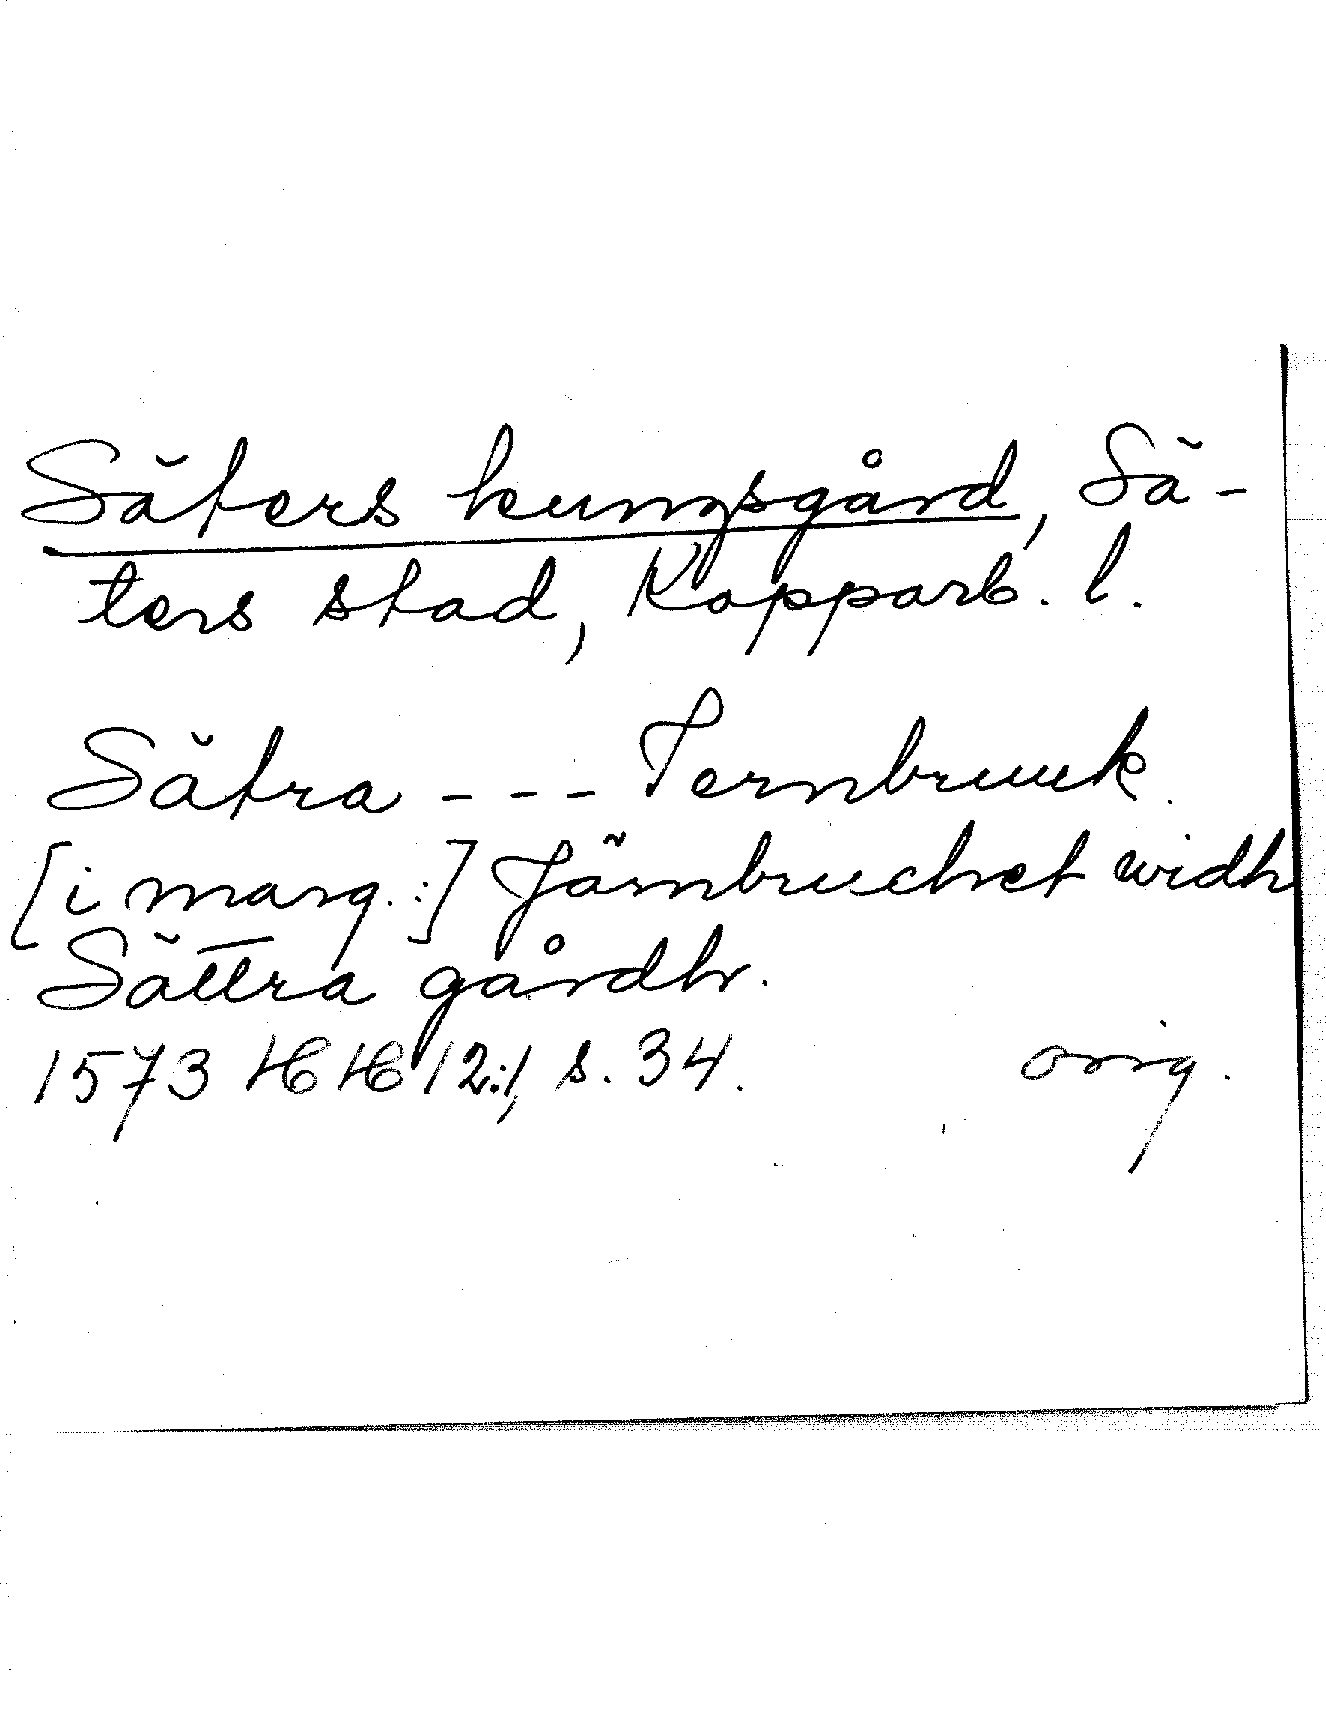 Säters kungsgård, Sä-
ters stad, Kopparb. l.
Sätra --- Jernbruuk.
[i marg.:] Järnbruchet widh
Sättra gårdh.
1573 HH 12:1, s. 34. orig.